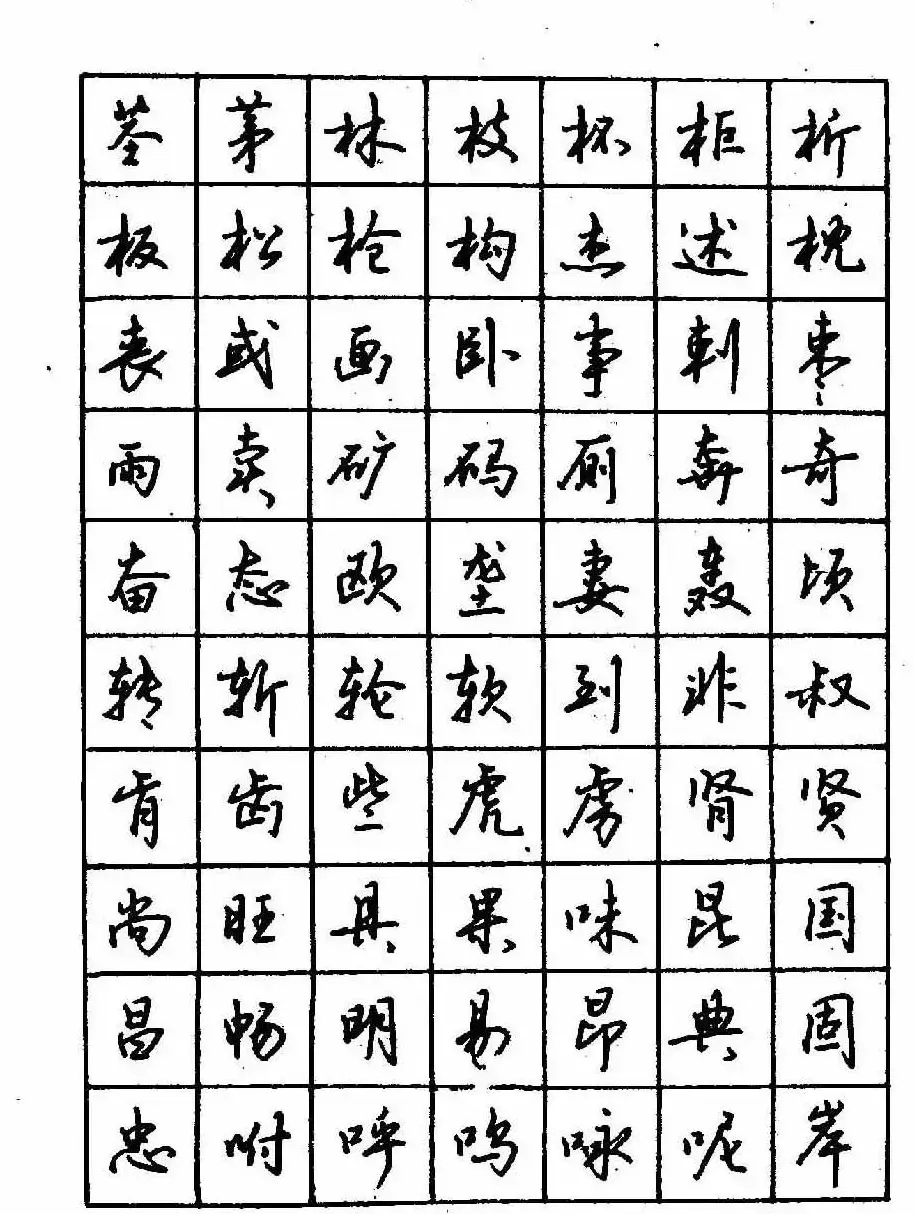 茎茅林枝杯柜析
板松枪构杰述枕
丧或画卧事刺枣
雨卖矿码厕奔奇
奋态欧垄妻轰顷
转斩轮软到非叔
肯齿些虎虏肾贤
尚旺具果味昆国
昌畅明易昂典固
忠咐呼鸣咏呢岸